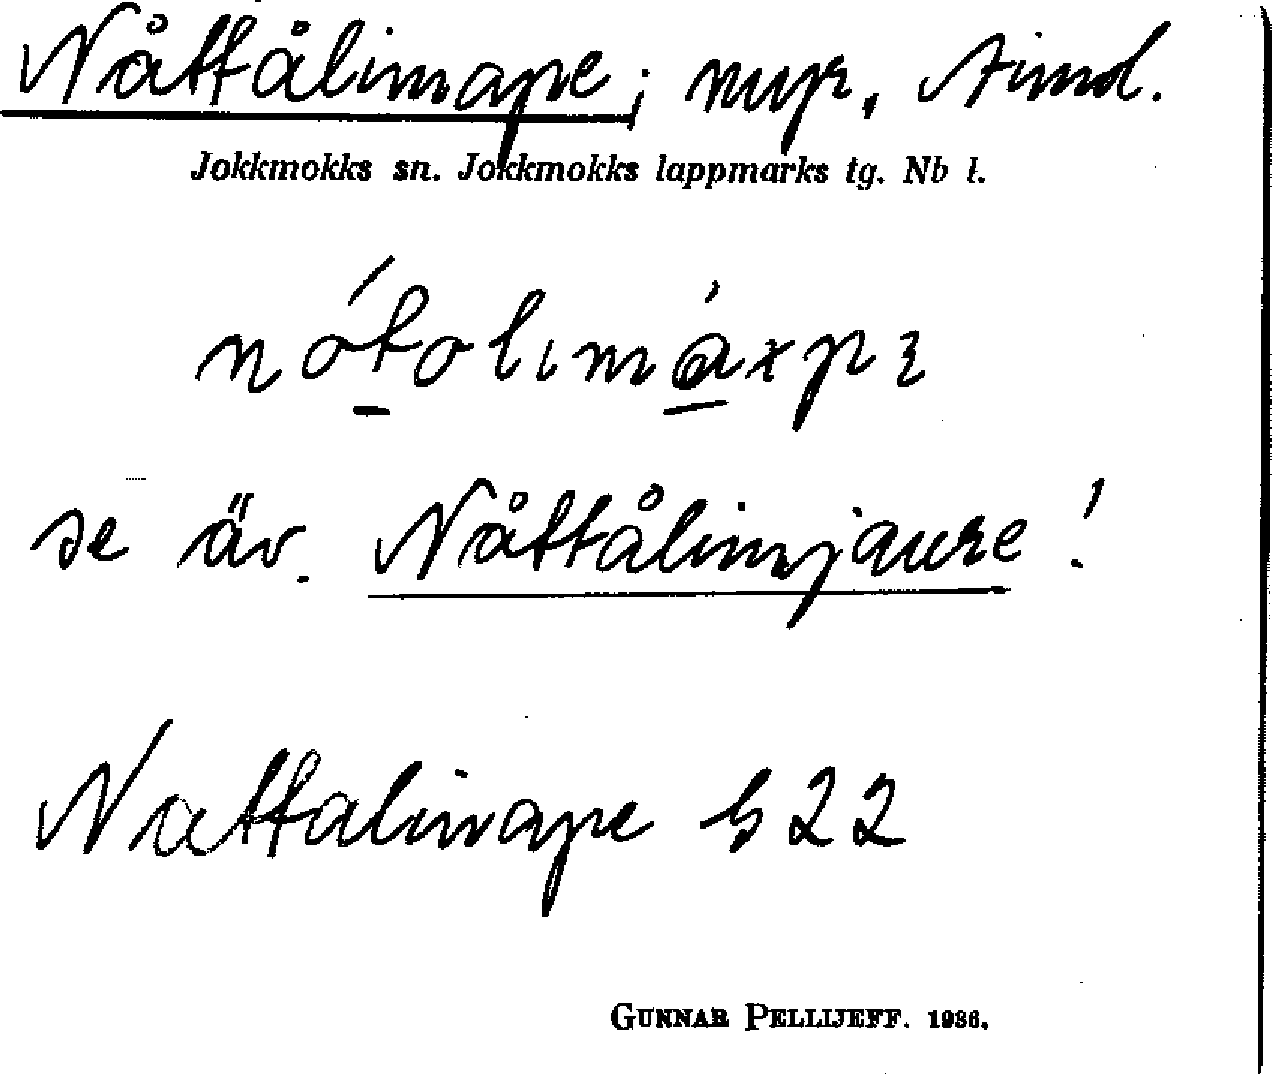 Nåttålimape; myr, Aimd.
Jokkmokks sn. Jokkmokks lappmarks tg. Nb l.
se äv. Nåttålimjaure!
Nattalimape b 22
GUNNAR PELLIJEFF. 1936.